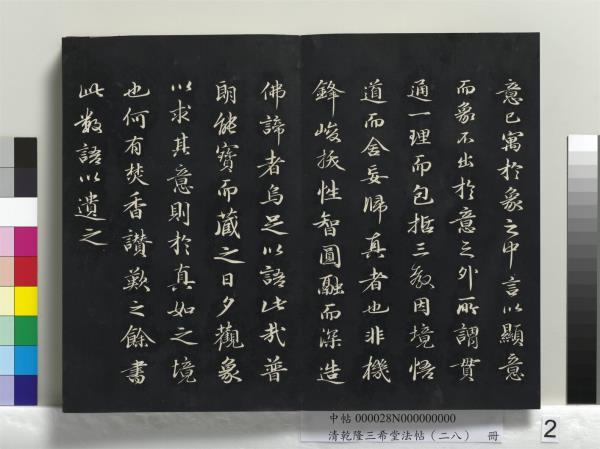 意已寓於象之中言以顯意
而象不出於意之外所謂貫
通一理而包括三教因境悟
道而舍妄歸真者也非機
鋒峻拔性智圓融而深造
佛諦者烏足以語此哉普
朗能寶而藏之日夕觀象
以求其意則於真如之境
也何有焚香讚歎之餘書
此數語以遺之
中帖 000028N000000000
清乾隆三希堂法帖（二八） 冊
2